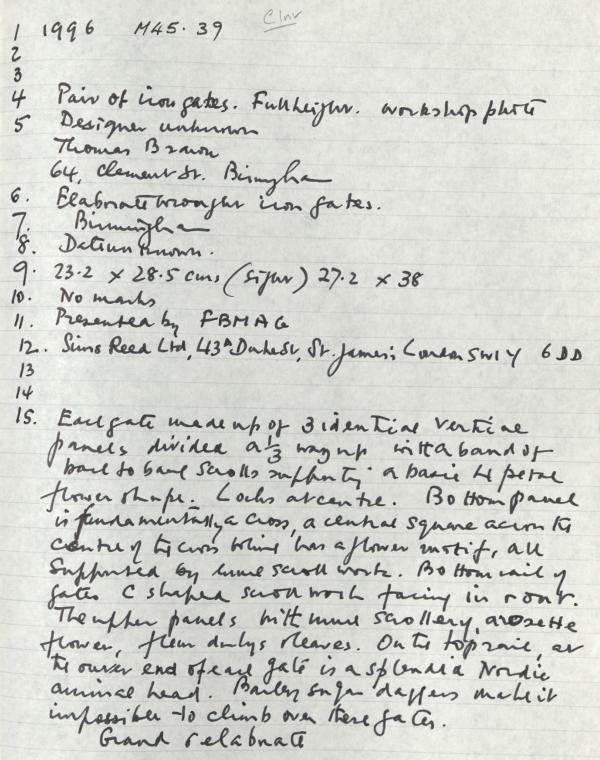 1 1996 M45.39
2
3
4 Pair of iron gates. Full height. workshop photo
5 Designer unknown
Thomas Brawn
64, Clement St. Birmingham
6. Elaborate wrought iron gates.
7. Birmingham
8. Date unknown.
9. 23.2 x 28.5 cms (sight) 27.2 x 38
10. No marks
11. Presented by FBMAG
12. Sims Reed Ltd, 43A Duke St, St. James's London SW1Y 6DD
13
14
15. Each gate made up of 3 identical vertical
panels divided a 1/3 way up with a band of
back to back scrolls supporting a basic 4 petal
flower shape. Locks at centre. Bottom panel
is fundamentally a cross, a central square across the
centre of the cross has a flower motif, all
supported by more scroll work. Bottom rail of
gates C shaped scroll work facing in & out.
The upper panels with more scrollery, a rosette
flower, fleur de lys & leaves. On the top rail, at
the outer end of each gate is a splendid Nordic
animal head. Barley sugar daggers make it
impossible to climb over these gates.
Grand & elaborate